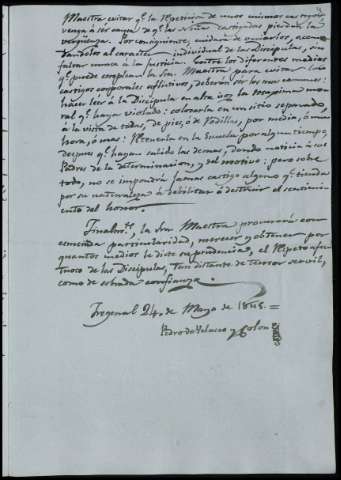 Maestra evitar q.e la repeticion de unos mismos castigos
venga á ser causa de q.e las Niñas castigadas pierdan la
vergüenza. Por consiguiente, cuidará de variarlos, acomo
dandolos al caracter individual de las Discipulas, sin
faltar nunca á la Justicia. Entre los diferentes medios
q.e puede emplear la Sra. Maestra para evitar los
castigos corporales aflictivos, deberán ser los mas comunes:
hacer leer á la Discipula en alta voz la maxima mo
ral q.e haya violado: colocarla en un sitio separado,
á la vista de todas, de pies, ó de rodillas, por media, ó una
hora, ó mas: retenerla en la Escuela por algun tiempo,
despues q.e hayan salido las demas, dando noticia á sus
Padres de la determinacion, y del motivo: pero sobre
todo, no se impondrá jamas castigo alguno q.e tienda
por su naturaleza á debilitar ó destruir el sentimi
ento del honor.
Finalm.te, la Sra. Maestra procurará con
esmerada particularidad, merecer y obtener por
quantos medios le dicte su prudencia, el respeto afec
tuoso de las Discipulas, tan distante de terror servil,
como de sobrada confianza.
Fregenal 24 de Mayo de 1848.=
Pedro de Velasco y Colon